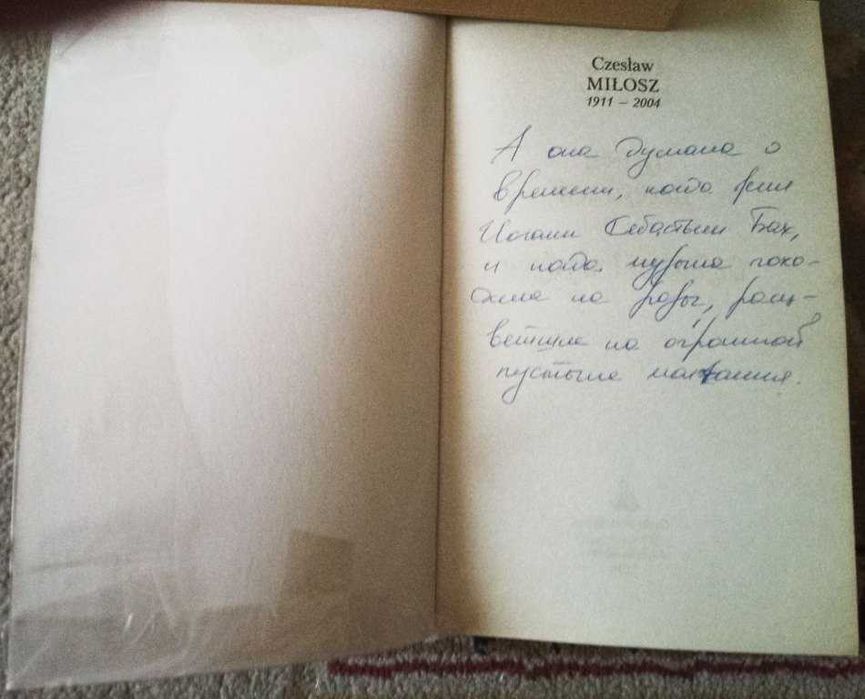 Czesław
MIŁOSZ
1911 – 2004
А она думала о
времени, когда жил
Иоганн Себастьян Бах,
и когда музыка похо-
дила на розы, расц-
ветшие на огромной
пустыне молчания.